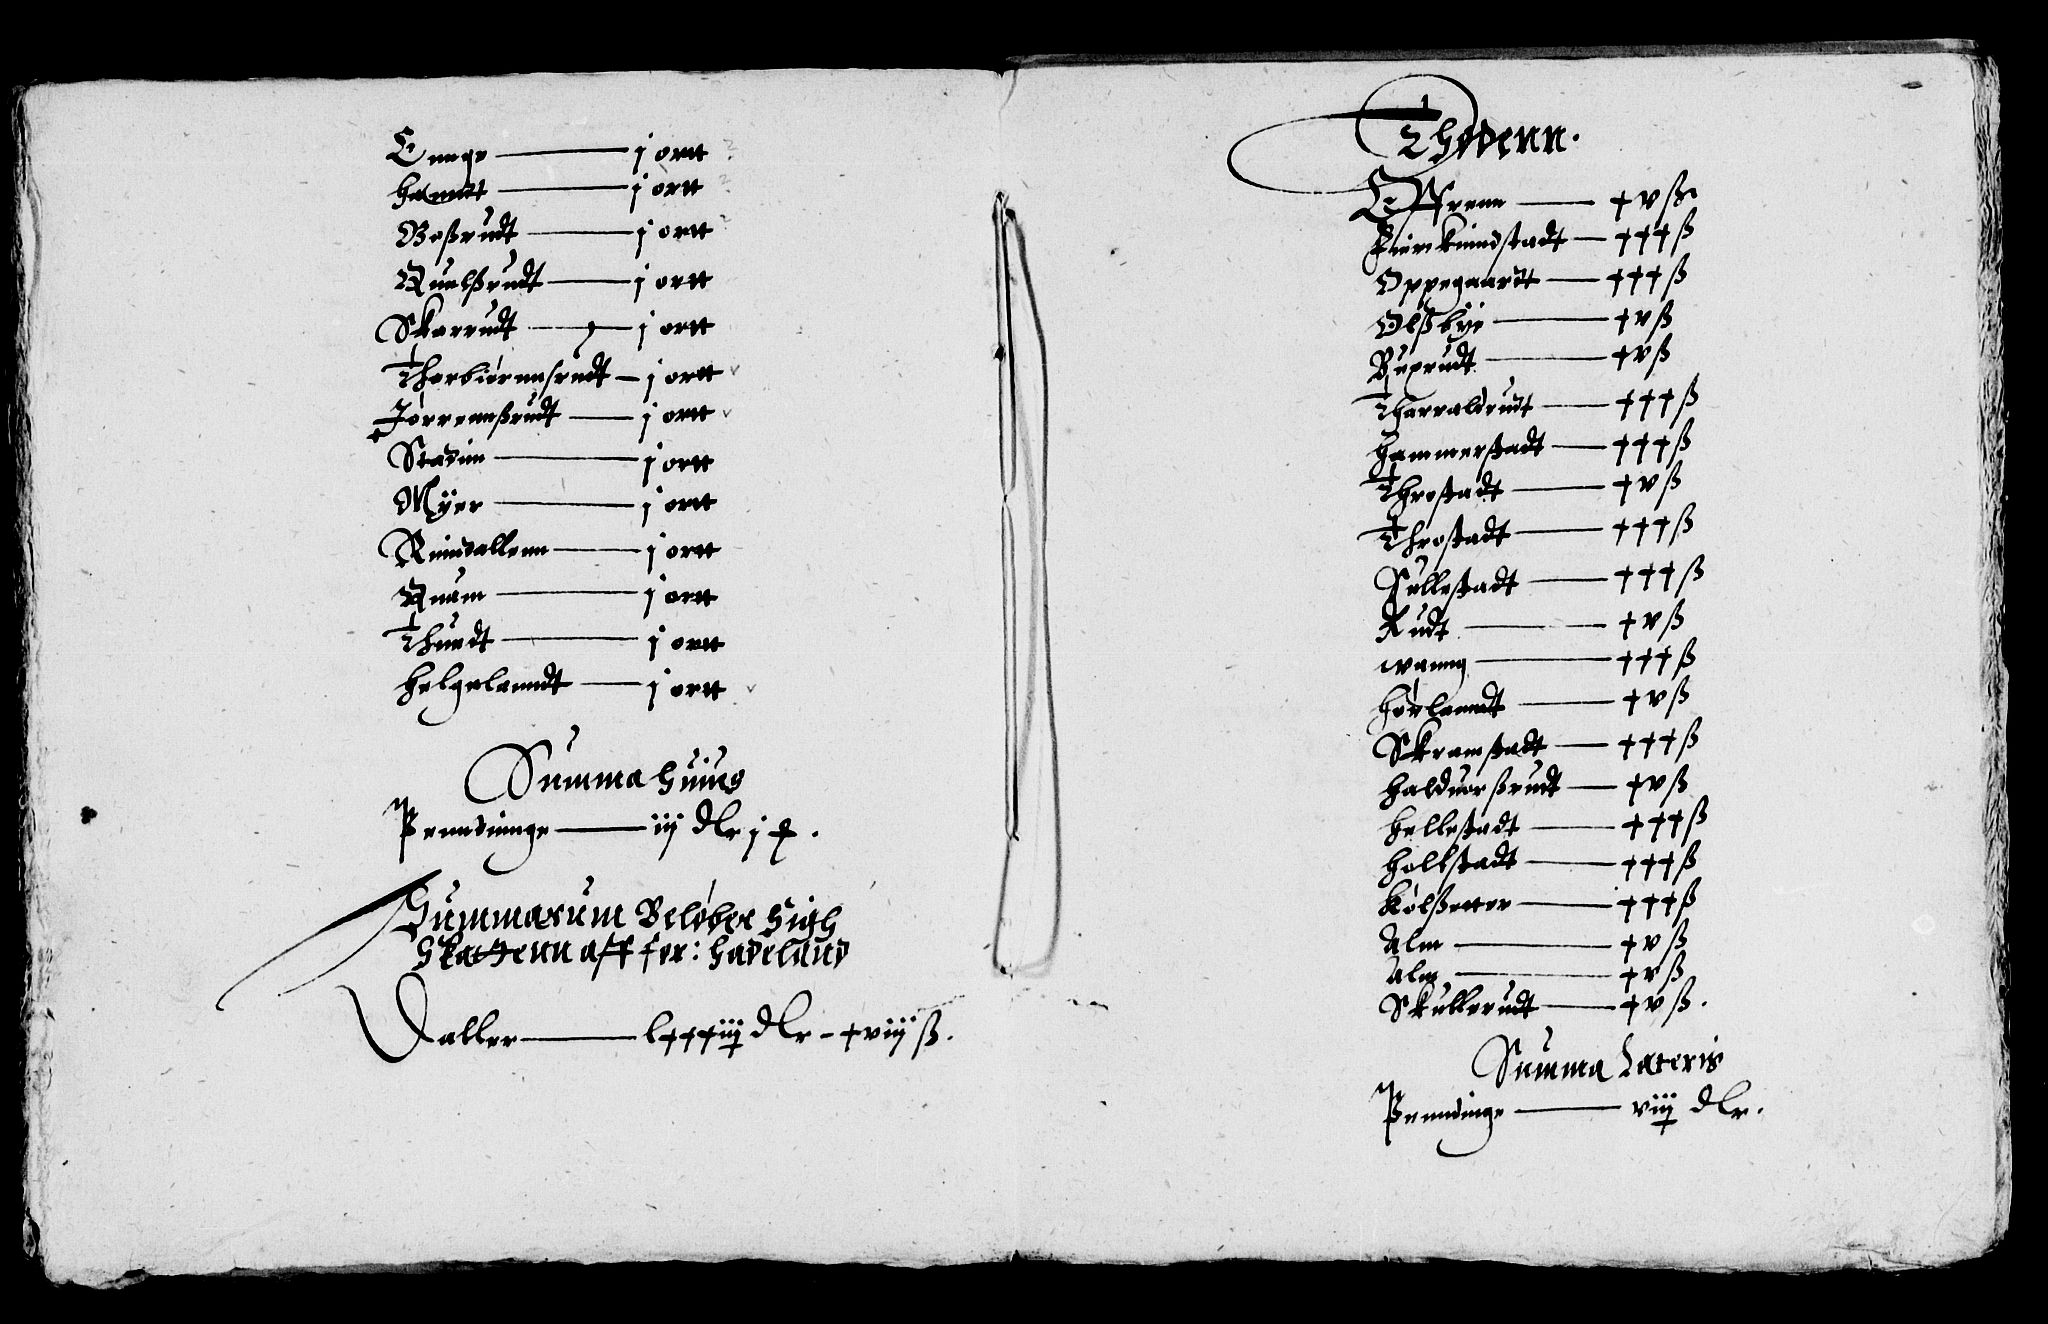 Ennge — j ortt
hamdt — j ortt
Boßrudt — j ortt
Quelßrudt — j ortt
Skarrudt — j ortt
Thorbiørnnsrudt — j ortt
Jørrennßrudt — j ortt
Stadim — j ortt
Myer — j ortt
Rinndallenn — j ortt
Quam — j ortt
Thundt — j ortt
helgelanndt — j ortt
Summa huius
Penndinge — iij dlr j
Summarum Beløber sigh
Skattenn aff for: hadeland
Daller — lxxxiiij dlr - xviij ß.
Thodenn.
Offrenn — xv ß
stadt — xxx ß
Oppegaardt — xxx ß
Olßbye — xv ß
rudt — xv ß
Tharaldrudt — xxx ß
hammerstadt — xxx ß
Throstadt — xv ß
Throstadt — xxx ß
Sullestadt — xxx ß
Rudt — xv ß
wanng — xxx ß
hørlanndt — xv ß
Skramstadt — xxx ß
halduorßrudt — xv ß
hellestadt — xxx ß
hollstadt — xxx ß
Kølßetter — xxx ß
Alm — xv ß
Alm — xv ß
Skullerudt — xv ß.
Summa Lateris
Penndinge — viij dlr.